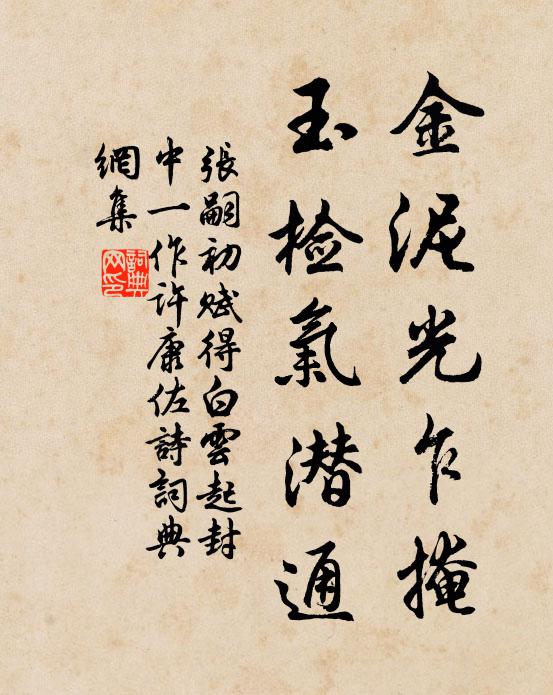 金泥光乍掩
玉檢氣潜通
張嗣初賦得白雲起封
中一作許康佐詩詞典
網集
詞典網印